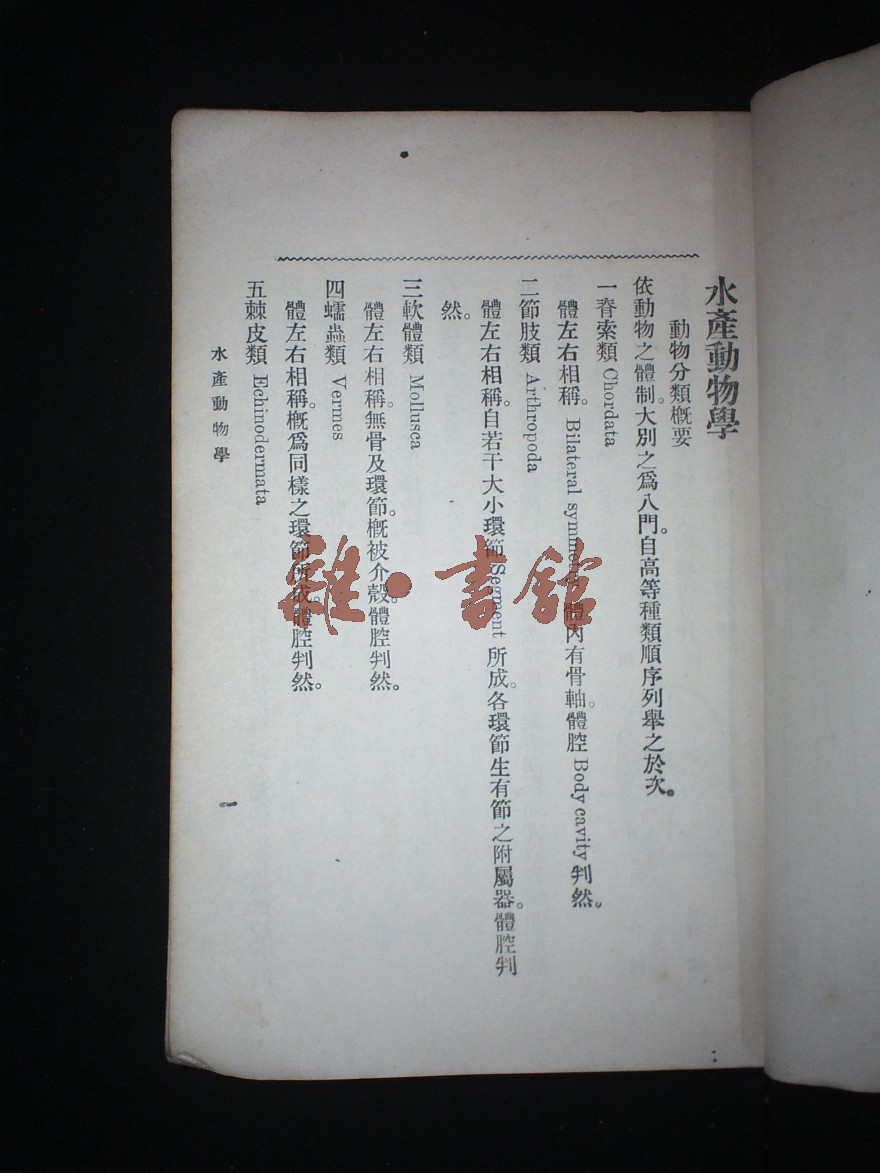 水產動物學
動物分類概要
依動物之體制。大別之爲八門。自高等種類順序列舉之於次。
一脊索類 Chordata
體左右相稱。Bilateral symmetry 體內有骨軸。體腔 Body cavity 判然。
二節肢類 Arthropoda
體左右相稱。自若干大小環節 Segment 所成。各環節生有節之附屬器。體腔判
然。
三軟體類 Mollusca
體左右相稱。無骨及環節。概被介殼。體腔判然。
四蠕蟲類 Vermes
體左右相稱。概爲同樣之環節所成。體腔判然。
五棘皮類 Echinodermata
水產動物學
一
雜·書館